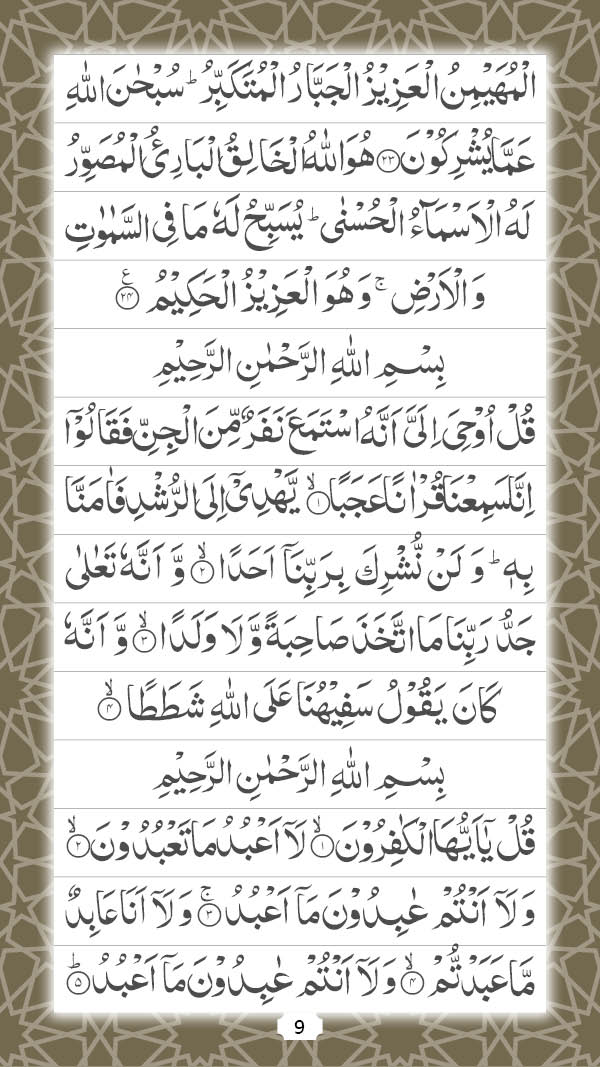 الْمُهَيْمِنُ الْعَزِيْزُ الْجَبَّارُ الْمُتَكَبِّرُ ؕ سُبْحٰنَ اللّٰهِ
عَمَّا يُشْرِكُوْنَ ۝۲۳ هُوَ اللّٰهُ الْخَالِقُ الْبَارِئُ الْمُصَوِّرُ
لَهُ الْاَسْمَآءُ الْحُسْنٰى ؕ يُسَبِّحُ لَهٗ مَا فِى السَّمٰوٰتِ
وَ الْاَرْضِ ۚ وَ هُوَ الْعَزِيْزُ الْحَكِيْمُ ۝۲۴ ع
بِسْمِ اللّٰهِ الرَّحْمٰنِ الرَّحِيْمِ
قُلْ اُوْحِىَ اِلَىَّ اَنَّهُ اسْتَمَعَ نَفَرٌ مِّنَ الْجِنِّ فَقَالُوْۤا
اِنَّا سَمِعْنَا قُرْاٰنًا عَجَبًا ۙ۝۱ يَّهْدِىْۤ اِلَى الرُّشْدِ فَاٰمَنَّا
بِهٖ ؕ وَ لَنْ نُّشْرِكَ بِرَبِّنَاۤ اَحَدًا ۙ۝۲ وَّ اَنَّهٗ تَعٰلٰى
جَدُّ رَبِّنَا مَا اتَّخَذَ صَاحِبَةً وَّ لَا وَلَدًا ۙ۝۳ وَّ اَنَّهٗ
كَانَ يَقُوْلُ سَفِيْهُنَا عَلَى اللّٰهِ شَطَطًا ۙ۝۴
بِسْمِ اللّٰهِ الرَّحْمٰنِ الرَّحِيْمِ
قُلْ يٰۤاَيُّهَا الْكٰفِرُوْنَ ۙ۝۱ لَاۤ اَعْبُدُ مَا تَعْبُدُوْنَ ۙ۝۲
وَ لَاۤ اَنْتُمْ عٰبِدُوْنَ مَاۤ اَعْبُدُ ۚ۝۳ وَ لَاۤ اَنَا عَابِدٌ
مَّا عَبَدْتُّمْ ۙ۝۴ وَ لَاۤ اَنْتُمْ عٰبِدُوْنَ مَاۤ اَعْبُدُ ؕ۝۵
9